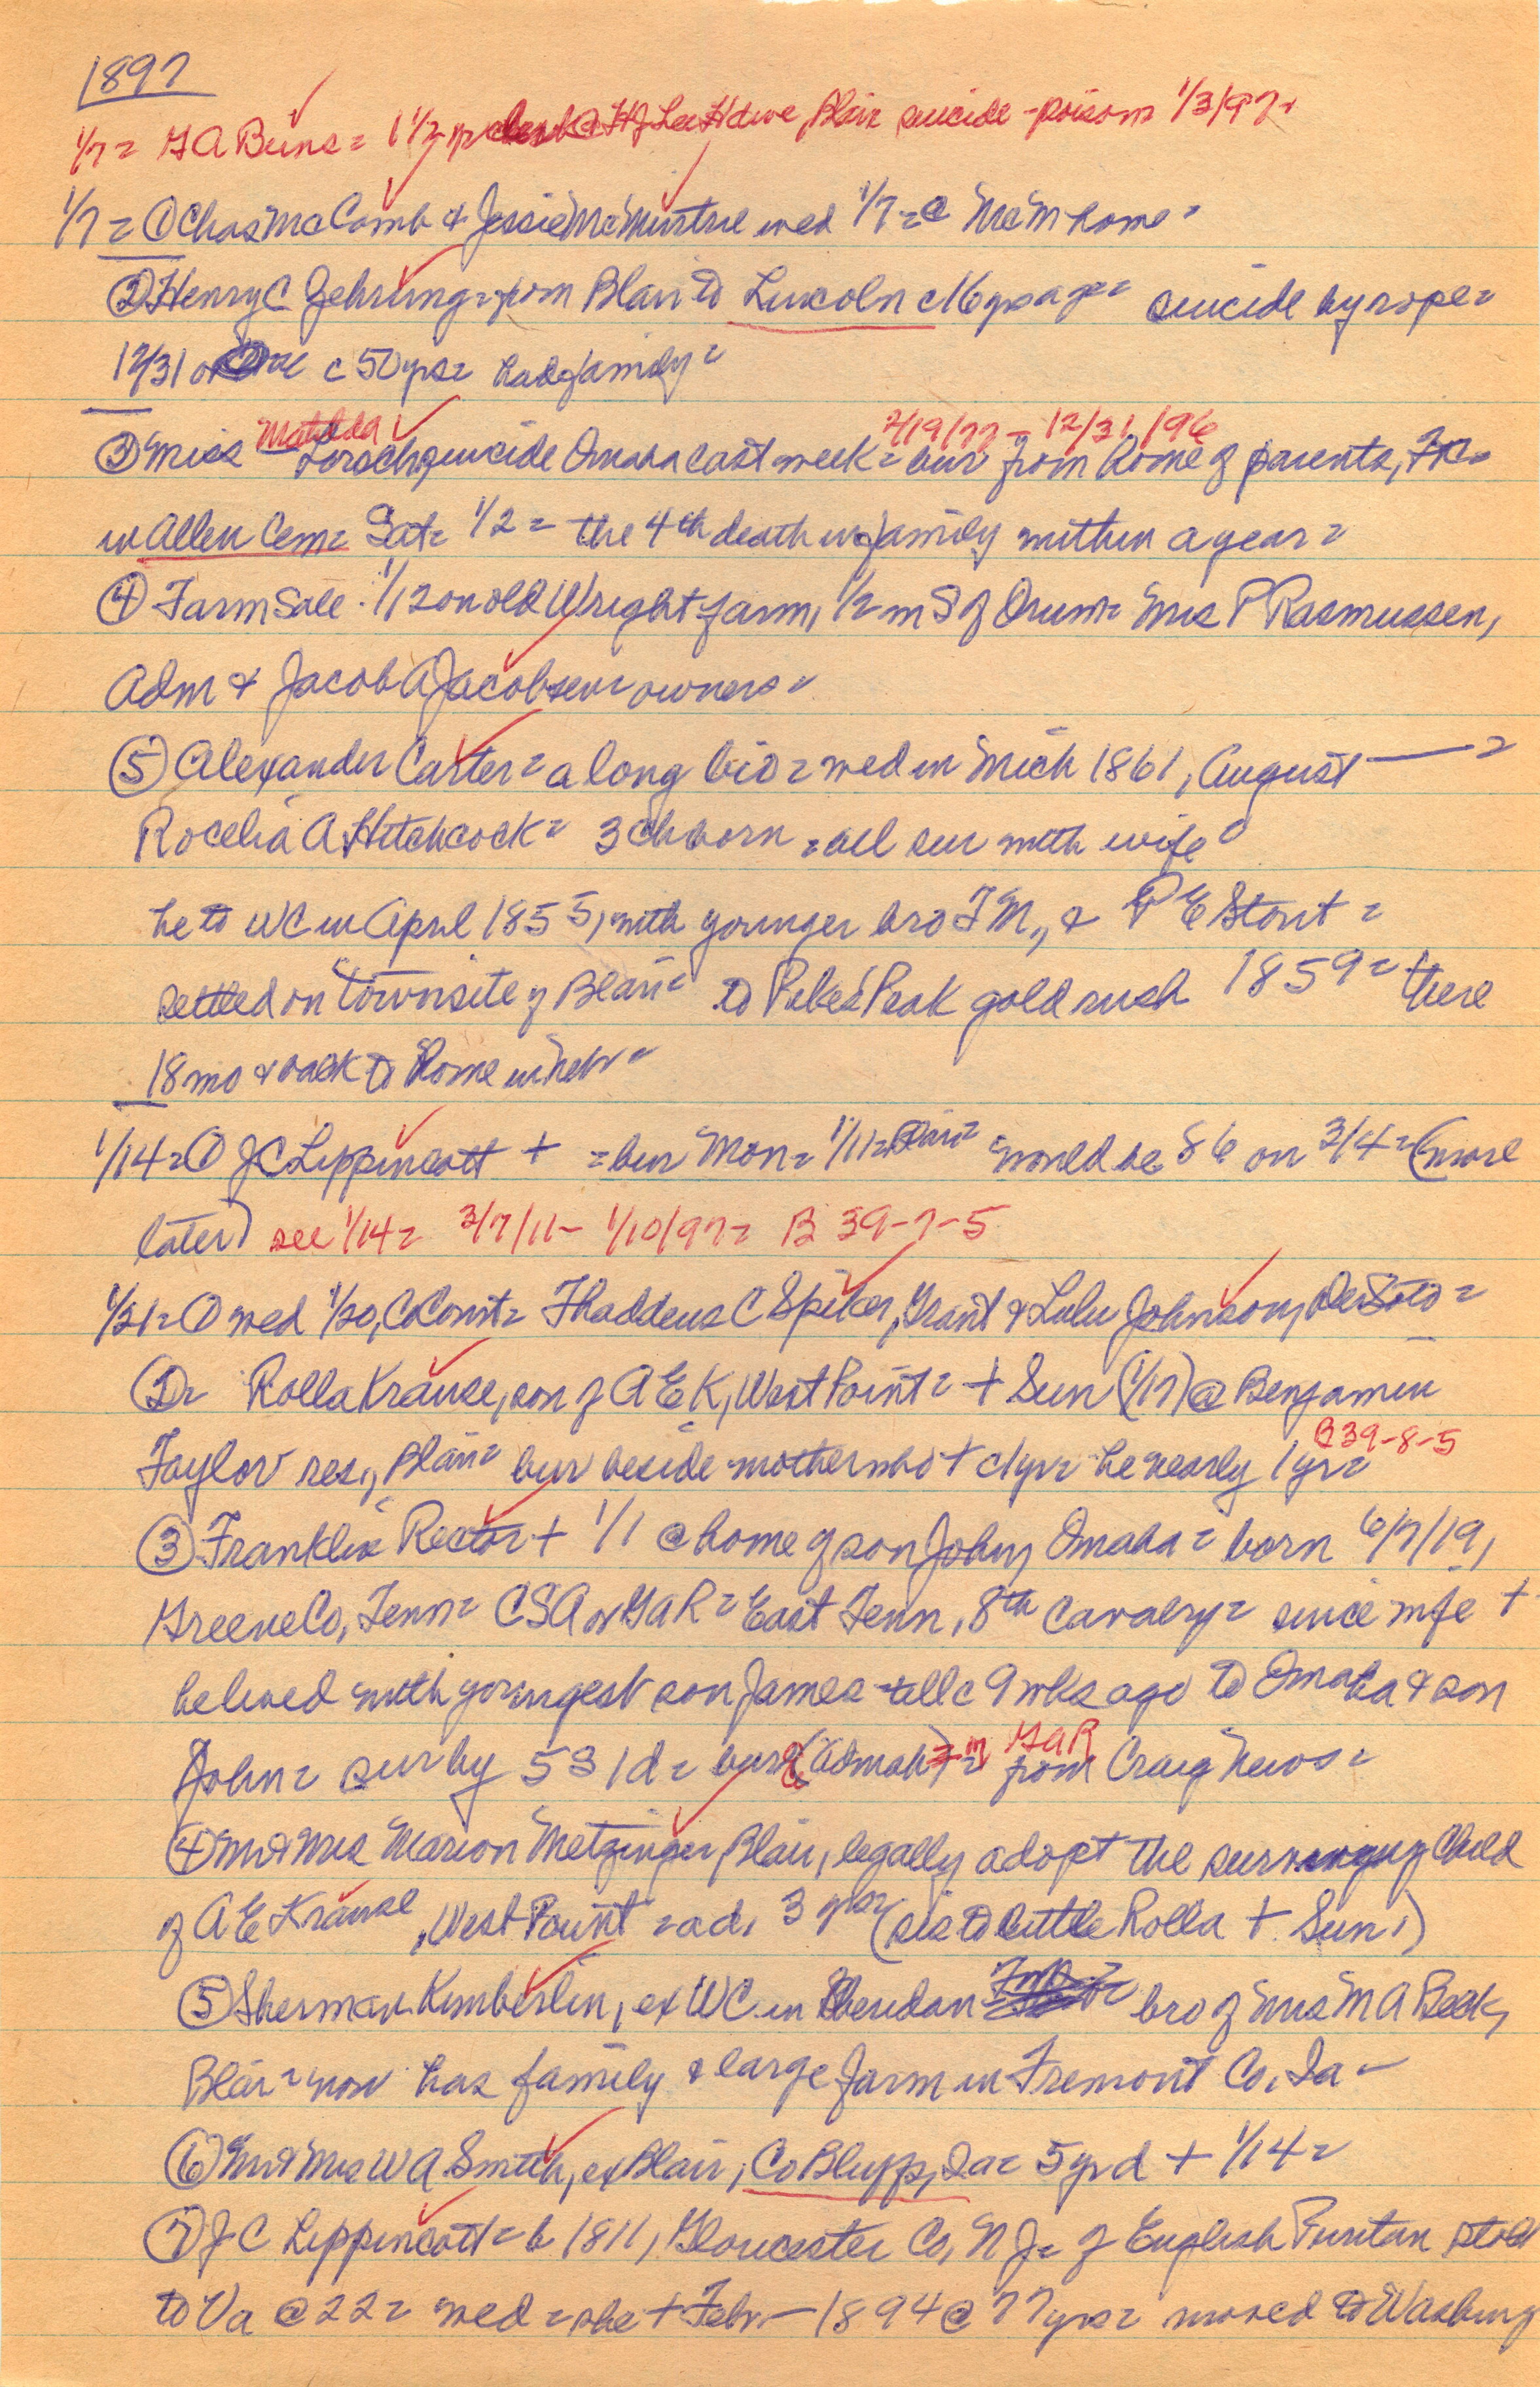 1897
1/7 = G A Buns = 1 1/2 yr clerk @ H J Lee Hdwe, Blair suicide - poison 1/3/97
1/7 = ① Chas McComb & Jessie McMurtrie wed 1/7 = @ McM home =
② Henry C Gehrung = from Blair to Lincoln c 16 yrs ago = suicide by rope =
12/31 c 50 yrs = had family =
③ Miss Matilda Lorsch suicide Omaha last week = bur from home of parents,
2/19/77 - 12/31/96
in Allen Cem = Sat = 1/2 = the 4th death in family within a year =
④ Farm Sale 1/12 on old Wright farm, 1/2 m S of Orum = Mrs P Rasmussen,
Adm & Jacob A Jacobsen = owners =
⑤ Alexander Carter = a long bio = wed in Mich 1861, August =
Rocelia A Hitchcock = 3 ch born = all sur with wife =
he to WC in April 1855, with younger bro F M, & P E Stout =
settled on townsite of Blair = to Pikes Peak gold rush 1859 = there
18 mo & back to home in Nebr =
1/14 = ① J C Lippincott + = bur Mon = 1/11 = Blair = would be 86 on 3/4 = (more
later) see 1/14 = 3/7/11 - 1/10/97 = B 39-7-5
1/21 = ① wed 1/20, Co Court = Thaddeus C Spiker, Grant & Lulu Johnson, DeSoto =
② = Rolla Krause, son of A E K, West Point = + Sun (1/17) @ Benjamin
Taylor res., Blair = bur beside mother who + c 1 yr = he nearly 1 yr = B 39-8-5
③ Franklin Rector + 1/1 @ home of son John, Omaha = born 6/7/19,
Greene Co, Tenn = CSA or GAR = East Tenn, 8th Cavalry = since wife +
he lived with youngest son James till c 9 wks ago to Omaha & son
John = sur by 5 S 1 d = bur @ (Omaha) = in GAR from Craig News =
④ Mr & Mrs Marion Metzinger, Blair, legally adopt the surviving child
of A E Krause, West Point = ad, 3 yrs = (sis to little Rolla + Sun.)
⑤ Sherman Kimberlin, ex WC in Sheridan = bro of Mrs M A Beck,
Blair = now has family & large farm in Fremont Co, Ia =
⑥ Mr & Mrs W A Smith, ex Blair, Co Bluffs, Ia = 5 yr d + 1/14 =
⑦ J C Lippincott = b 1811, Gloucester Co, N J = of English Puritan stock
to Va @ 22 = wed = she + Febr - 1894 @ 77 yrs = moved to Washing